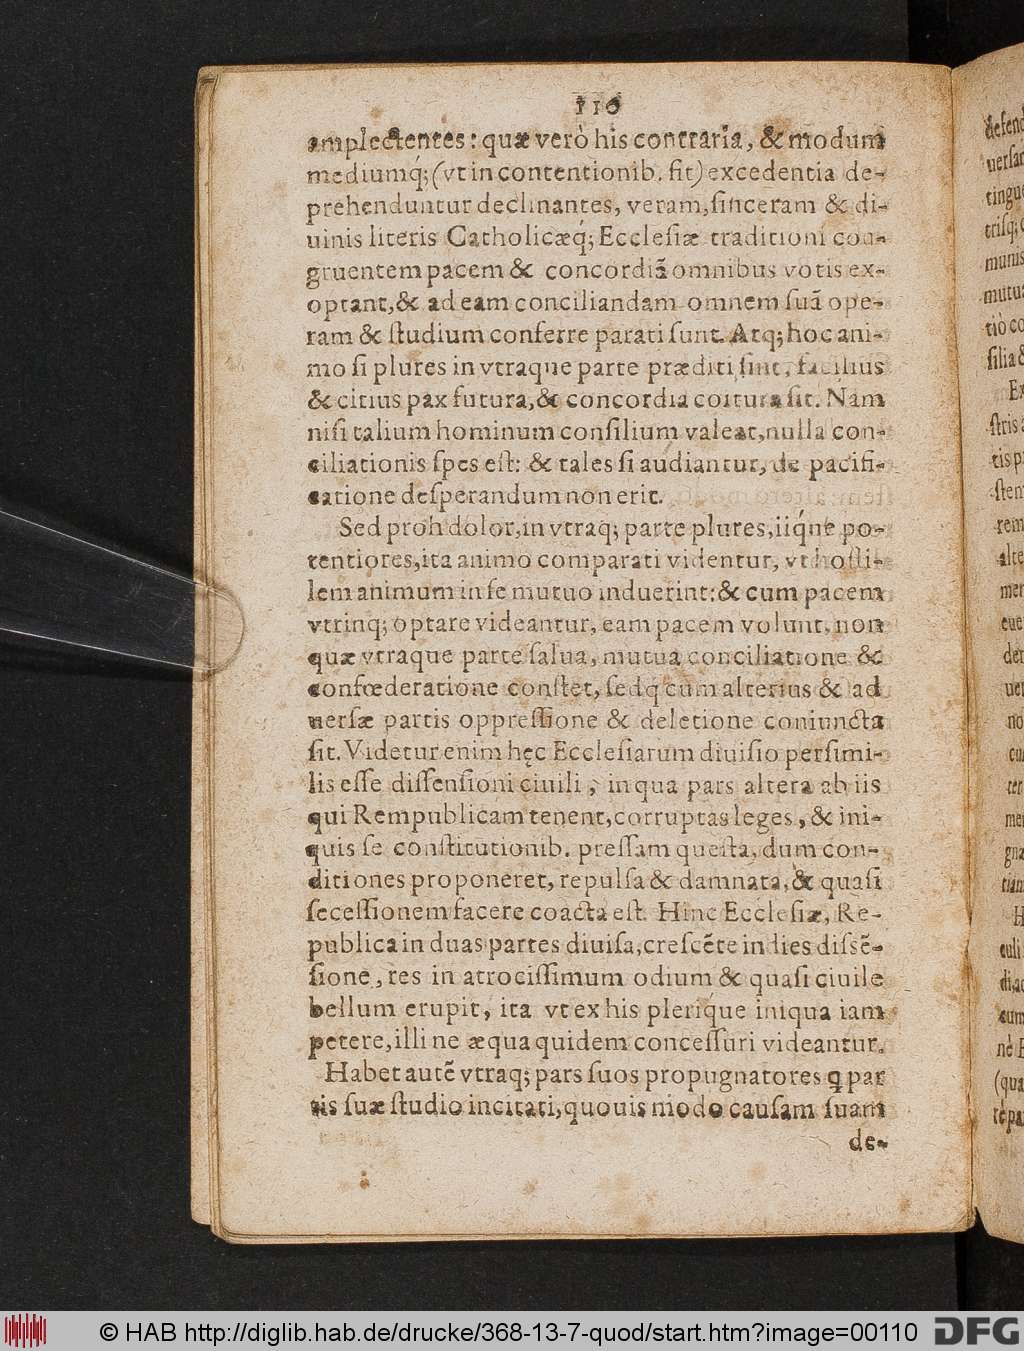 110
amplectentes: quæ verò his contraria, & modum
mediumq́; (vt in contentionib. fit) excedentia de-
prehenduntur declinantes, veram, sinceram & di-
uinis literis Catholicæq́; Ecclesiæ traditioni con-
gruentem pacem & concordiã omnibus votis ex-
optant, & ad eam conciliandam omnem suã ope-
ram & studium conferre parati sunt. Atq; hoc ani-
mo si plures in vtraque parte præditi sint, facilius
& citius pax futura, & concordia coitura sit. Nam
nisi talium hominum consilium valeat, nulla con-
ciliationis spes est: & tales si audiantur, de pacifi-
catione desperandum non erit.
Sed proh dolor, in vtraq; parte plures, iiq́ue po-
tentiores, ita animo comparati videntur, vt hosti-
lem animum in se mutuo induerint: & cum pacem
vtrinq; optare videantur, eam pacem volunt, non
quæ vtraque parte salua, mutua conciliatione &
confœderatione constet, sed q̃ cum alterius & ad
uersæ partis oppressione & deletione coniuncta
sit. Videtur enim hęc Ecclesiarum diuisio persimi-
lis esse dissensioni ciuili, in qua pars altera ab iis
qui Rempublicam tenent, corruptas leges, & ini-
quis se constitutionib. pressam questa, dum con-
ditiones proponeret, repulsa & damnata, & quasi
secessionem facere coacta est. Hinc Ecclesiæ, Re-
publica in duas partes diuisa, crescẽte in dies dissẽ-
sione, res in atrocissimum odium & quasi ciuile
bellum erupit, ita vt ex his pleriq́ue iniqua iam
petere, illi ne æqua quidem concessuri videantur.
Habet autẽ vtraq; pars suos propugnatores ꝗ par
tis suæ studio incitati, quouis modo causam suam
de-
© HAB http://diglib.hab.de/drucke/368-13-7-quod/start.htm?image=00110
DFG